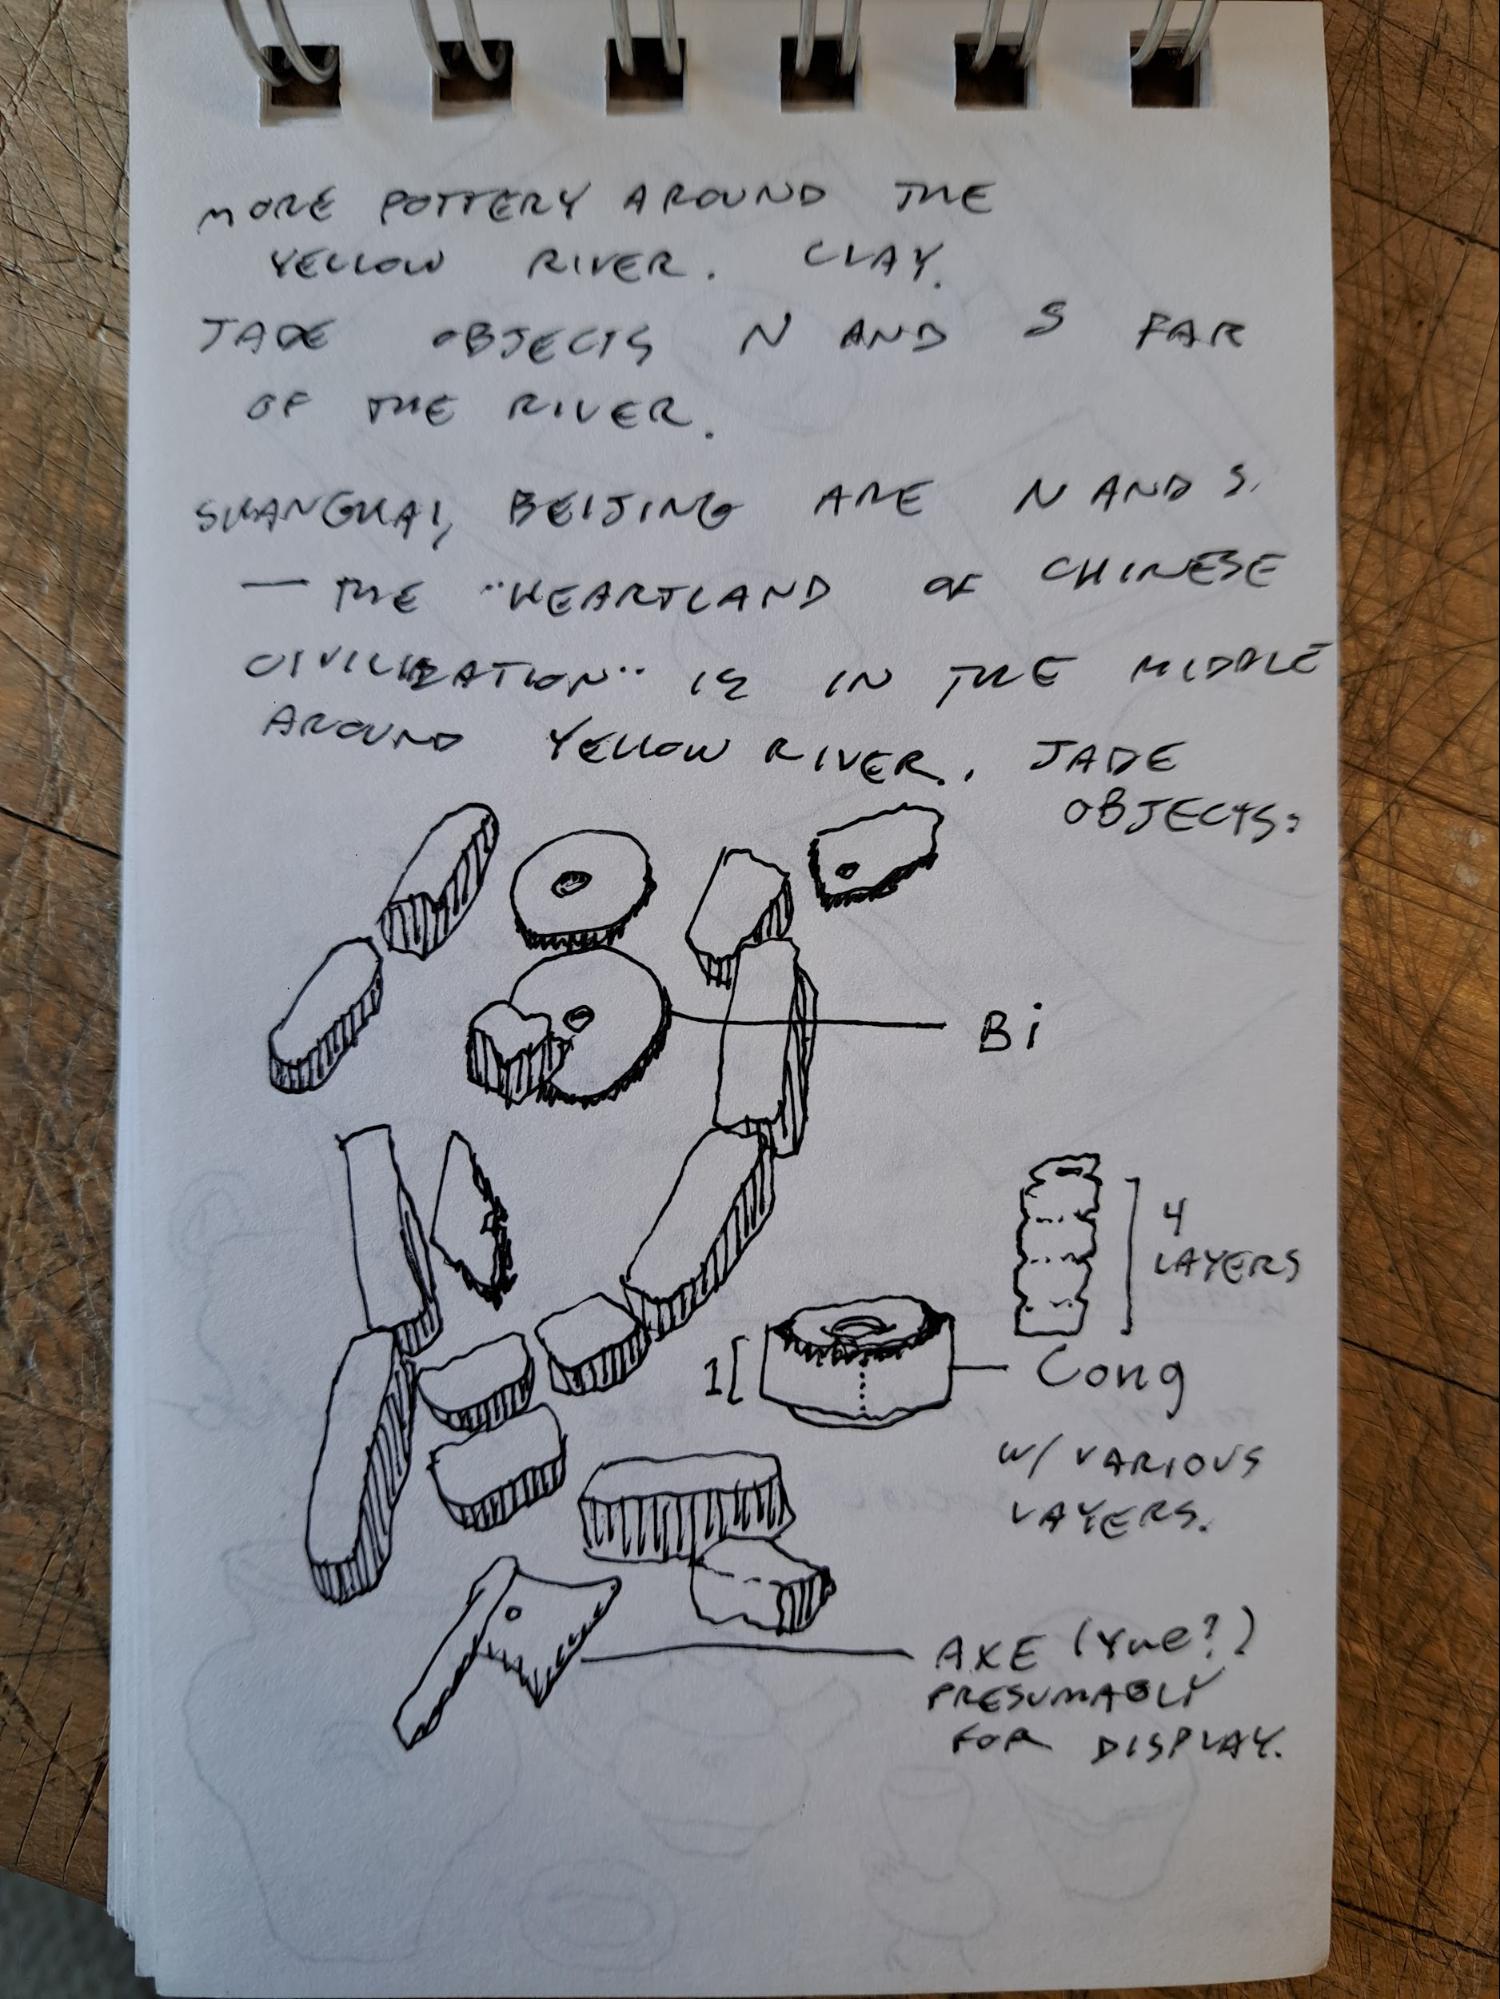 MORE POTTERY AROUND THE
YELLOW RIVER. CLAY.
JADE OBJECTS N AND S FAR
OF THE RIVER.
SHANGHAI, BEIJING ARE N AND S.
— THE "HEARTLAND OF CHINESE
CIVILIZATION" IS IN THE MIDDLE
AROUND YELLOW RIVER. JADE
OBJECTS:
Bi
4
LAYERS
1
Cong
W/ VARIOUS
LAYERS.
AXE (Yue?)
PRESUMABLY
FOR DISPLAY.